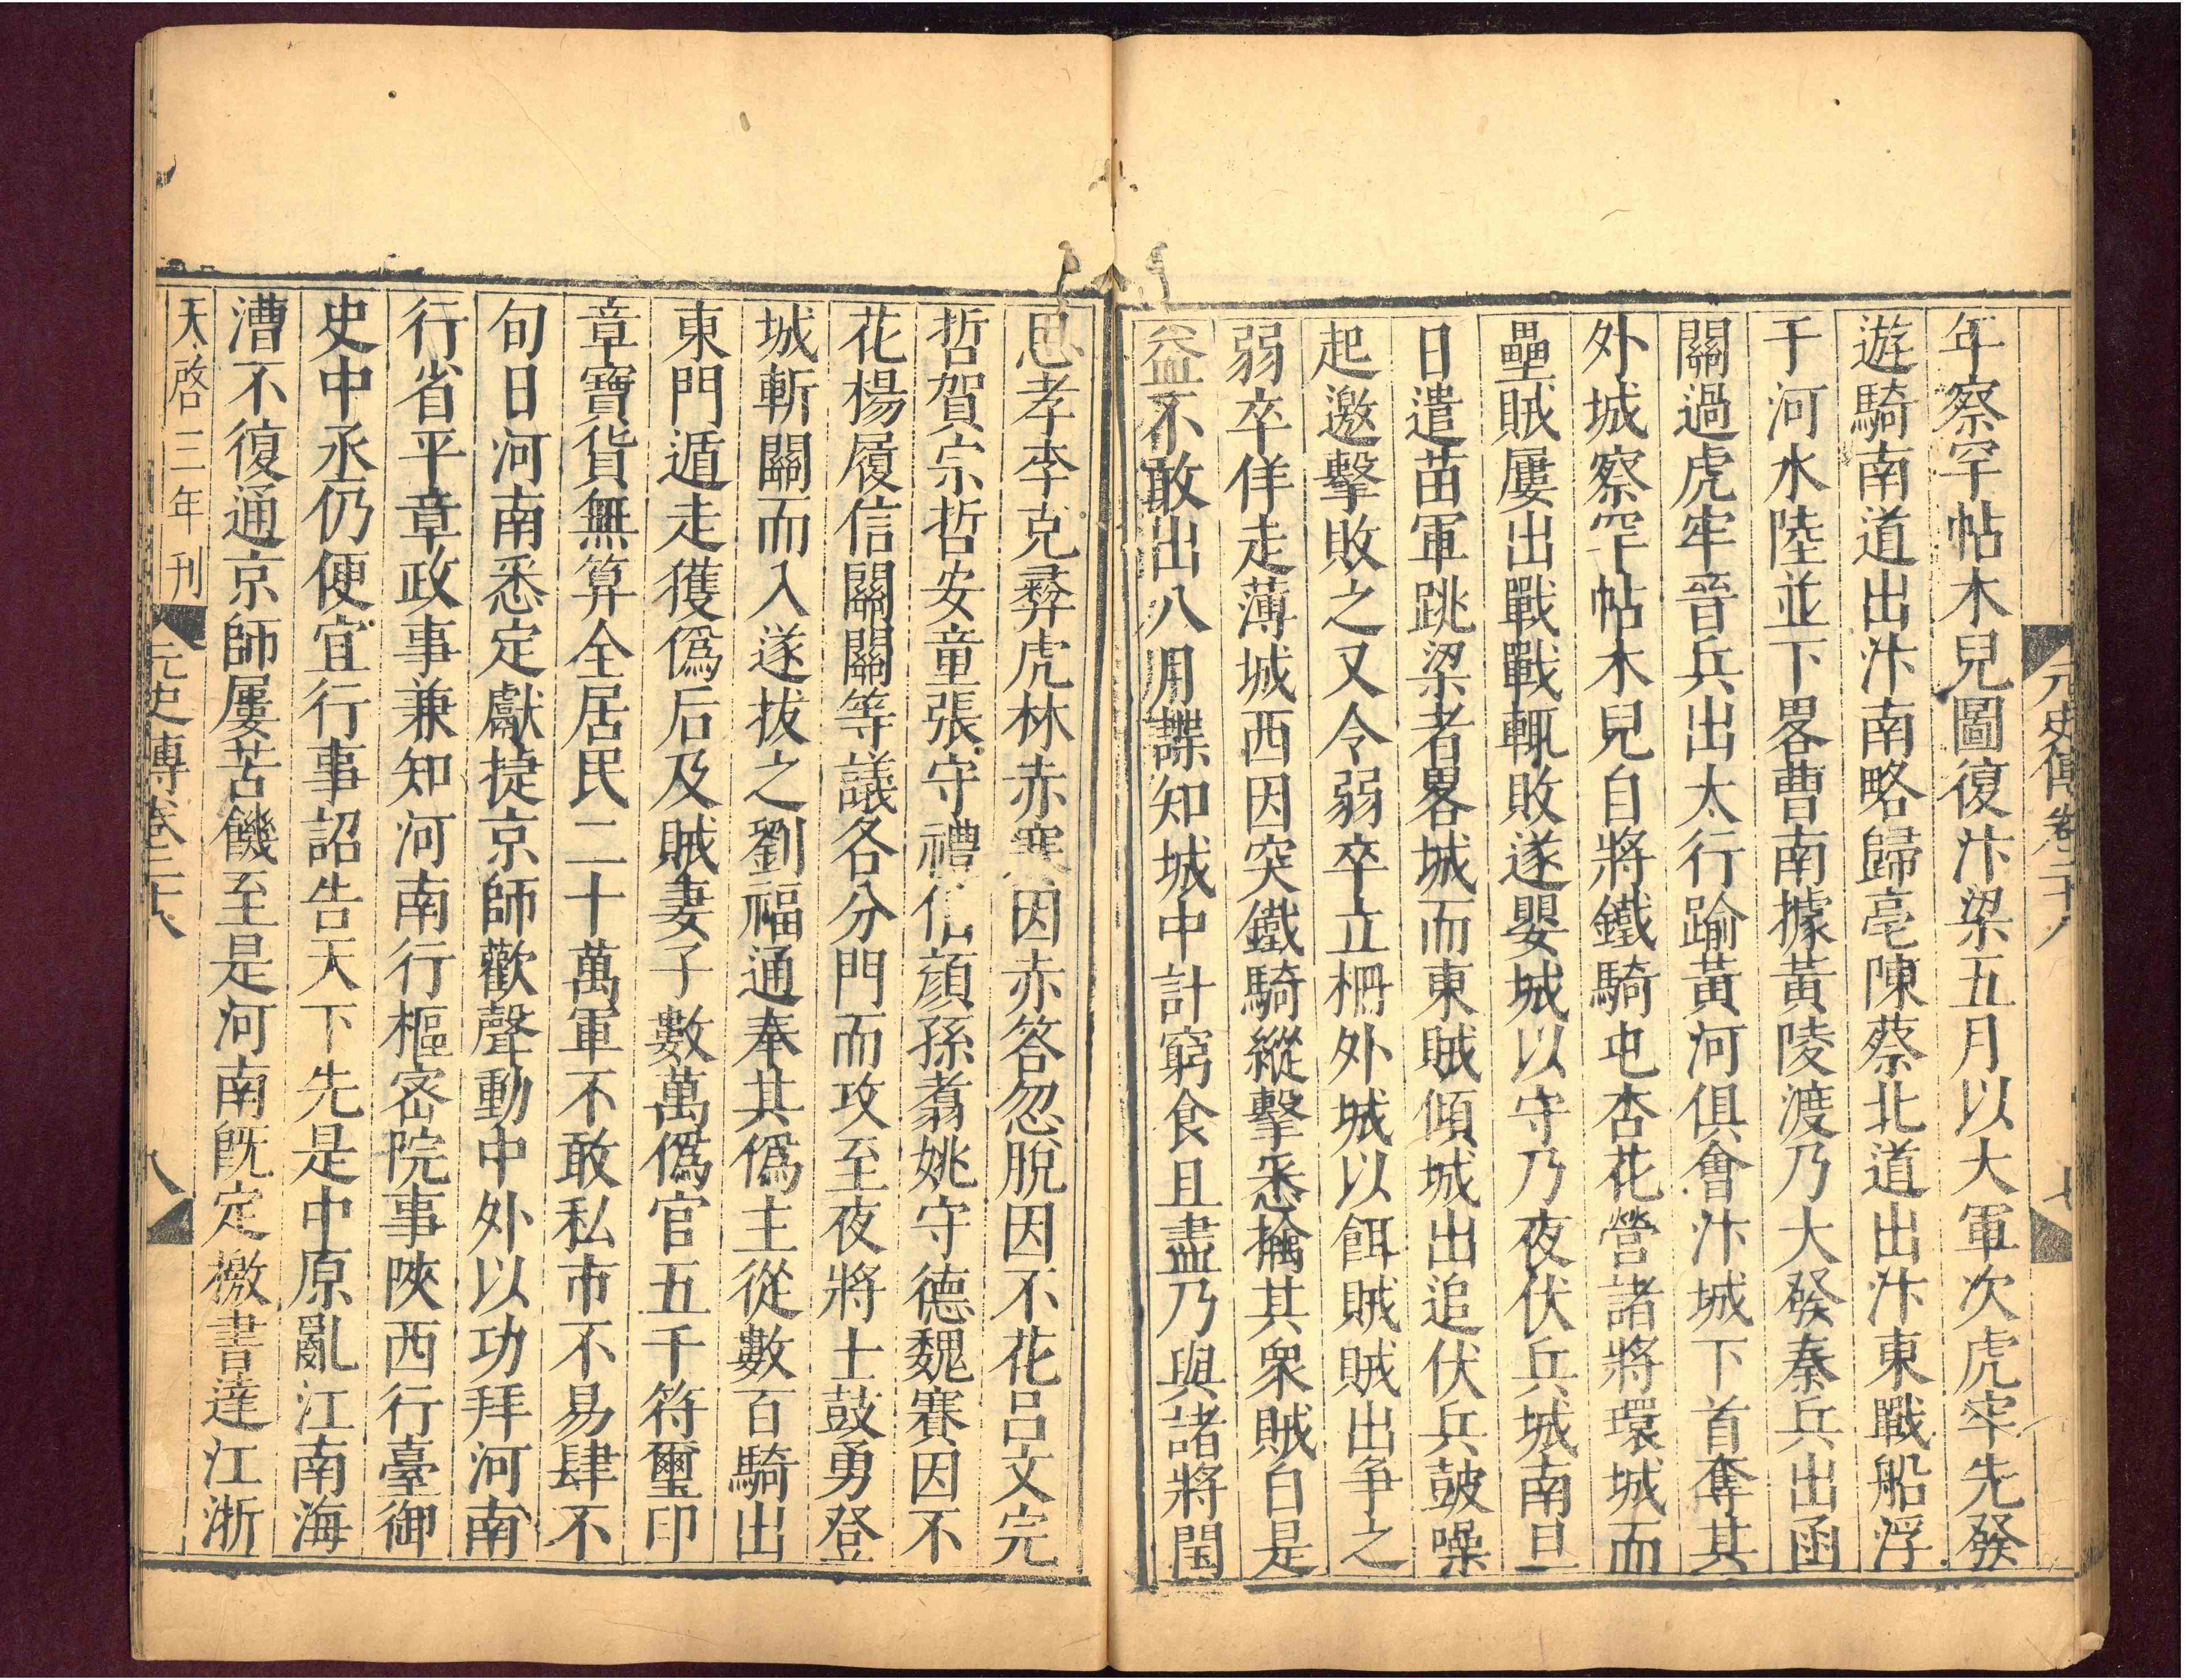 元史傳卷二十八
七
年察罕帖木兒圖復汴梁五月以大軍次虎牢先發
遊騎南道出汴南略歸亳陳蔡北道出汴東戰船浮
于河水陸並下畧曹南據黃陵渡乃大發秦兵出函
關過虎牢晉兵出太行踰黃河俱會汴城下首奪其
外城察罕帖木兒自將鐵騎屯杏花營諸將環城而
壘賊屢出戰戰輒敗遂嬰城以守乃夜伏兵城南旦
日遣苗軍跳梁者畧城而東賊傾城出追伏兵鼓噪
起邀擊敗之又令弱卒立柵外城以餌賊賊出争之
弱卒佯走薄城西因突鐵騎縱擊悉擒其衆賊自是
益不敢出八月諜知城中計窮食且盡乃與諸將閻
思孝李克彞虎林赤賽因赤答忽脫因不花呂文完
哲賀宗哲安童張守禮伯顏孫翥姚守德魏賽因不
花楊履信關關等議各分門而攻至夜將士鼓勇登
城斬關而入遂拔之劉福通奉其僞主從數百騎出
東門遁走獲僞后及賊妻子數萬僞官五千符璽印
章寶貨無算全居民二十萬軍不敢私市不易肆不
旬日河南悉定獻捷京師歡聲動中外以功拜河南
行省平章政事兼知河南行樞密院事陜西行臺御
史中丞仍便宜行事詔告天下先是中原亂江南海
漕不復通京師屢苦饑至是河南既定檄書達江浙
天啓三年刊
元史傳卷二十八
八